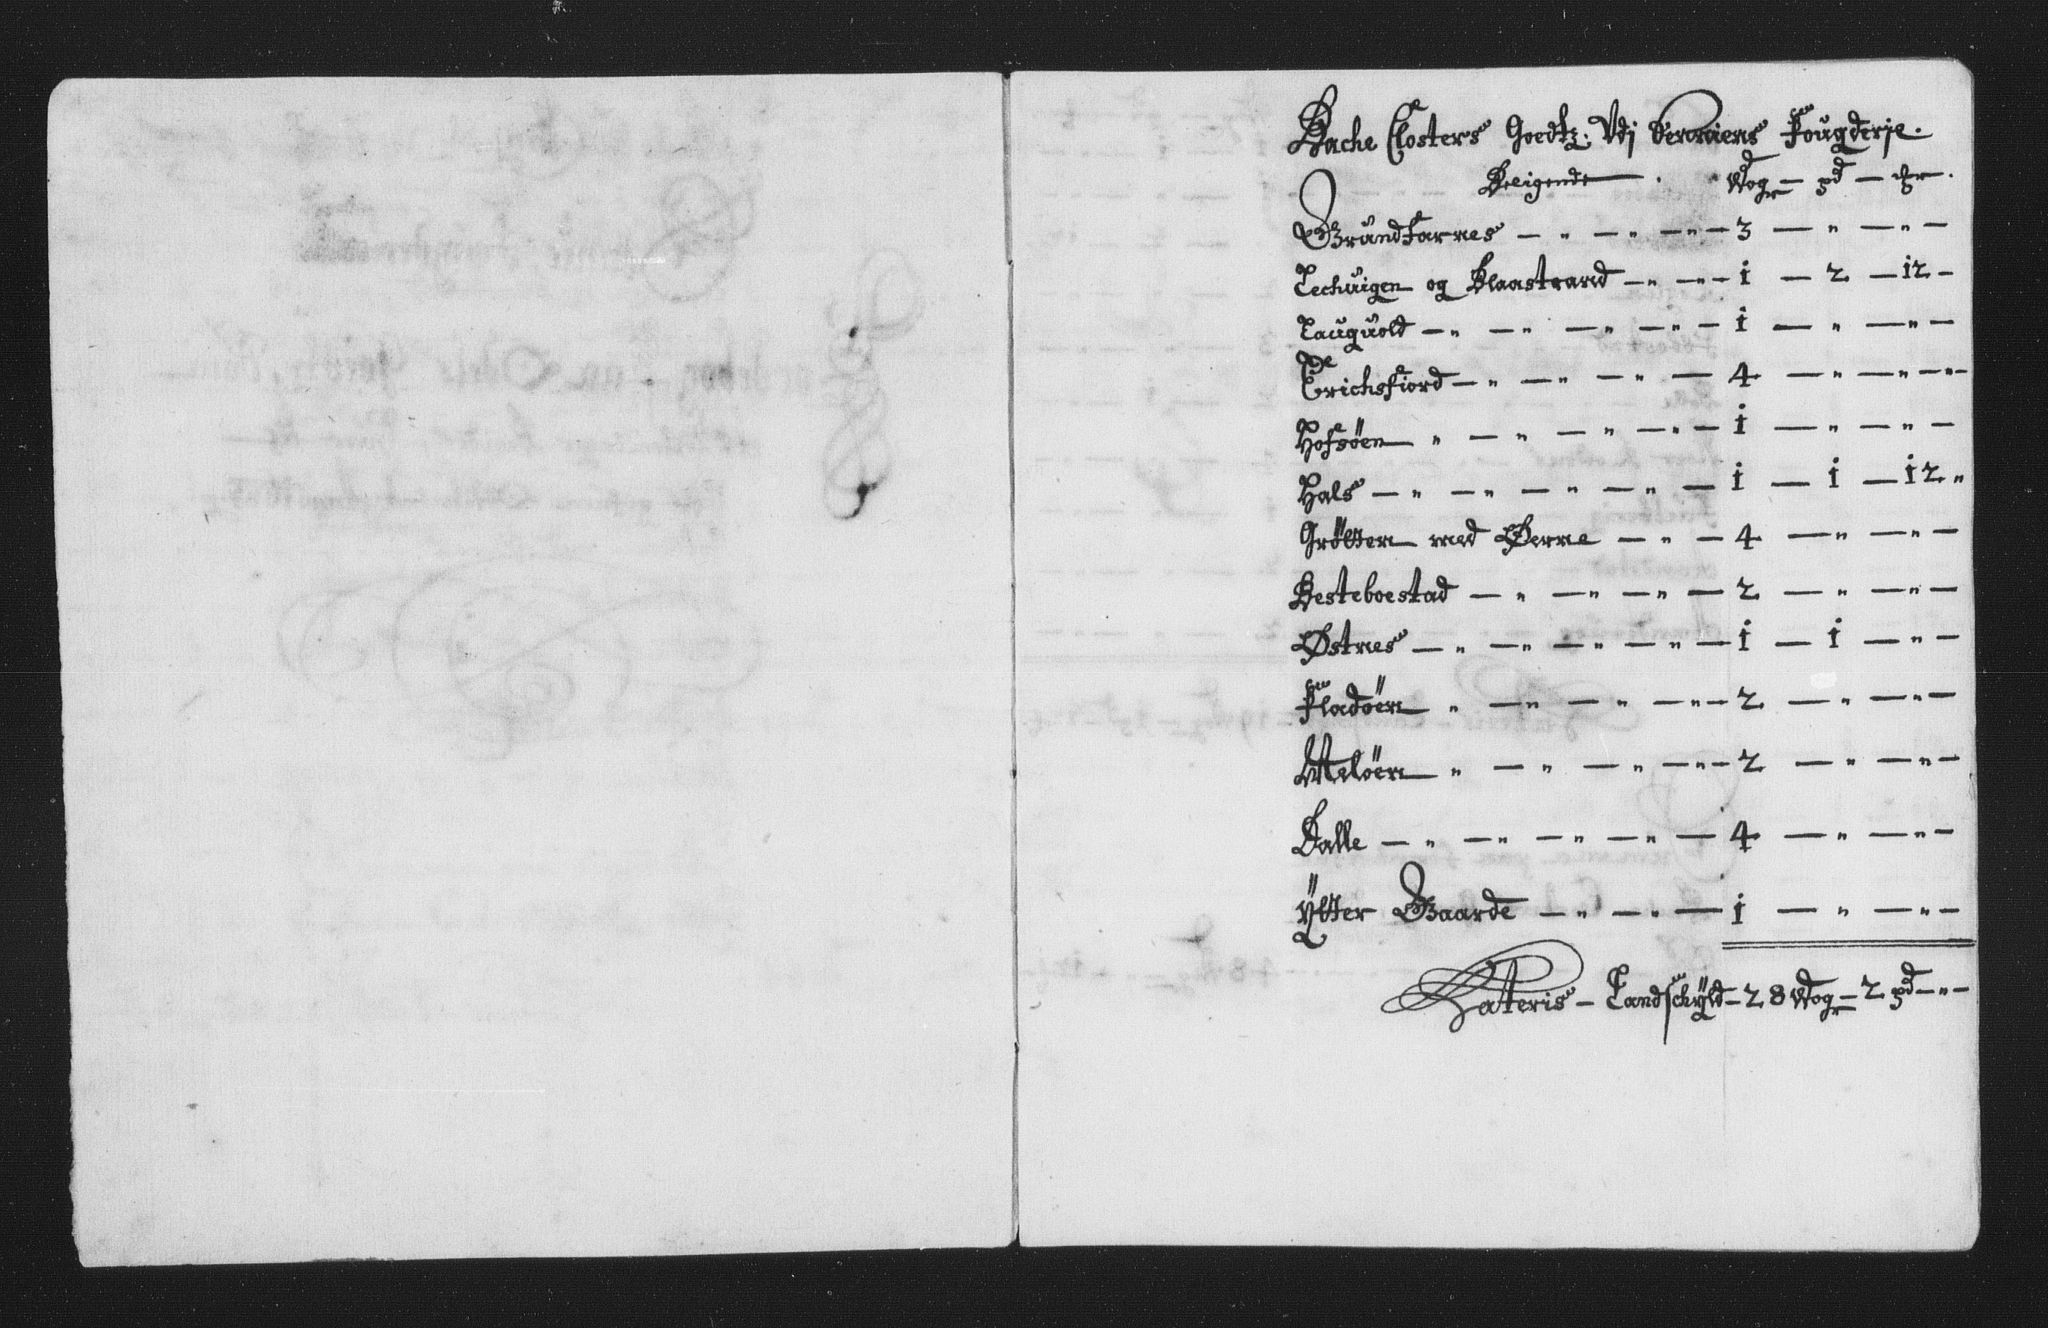 Bache Closters Goedtz. Vdj Senniens Fougderje.
Beligende — . Wogr — pd — .
Grundfarnes — " — " — " — 3 — " — " —
Lechuigen og Blaastrand — " — " — i — 2 — i2 —
Lauguold — " — " — " — " — i — " — " —
Erichsfiord — " — " — " — 4 — " — " — " —
Hofsöen — " — " — " — " — i — " — " —
Hals — " — " — " — " — i — i — i2 "
Grötten med Øerne — " — 4 — " — " —
Besteboestad — " — " — " — 2 — " — " —
Østnes — " — " — " — " — i — i — " —
Fladöen — " — " — " — " — 2 — " — " —
Melöen — " — " — " — " — 2 — " — " —
Dalle — " — " — " — " — 4 — " — " —
Ÿtter Gaarde — " — " — i — " — " —
Lateris — Landschÿld — 28 Wogr — 2 pd — " —